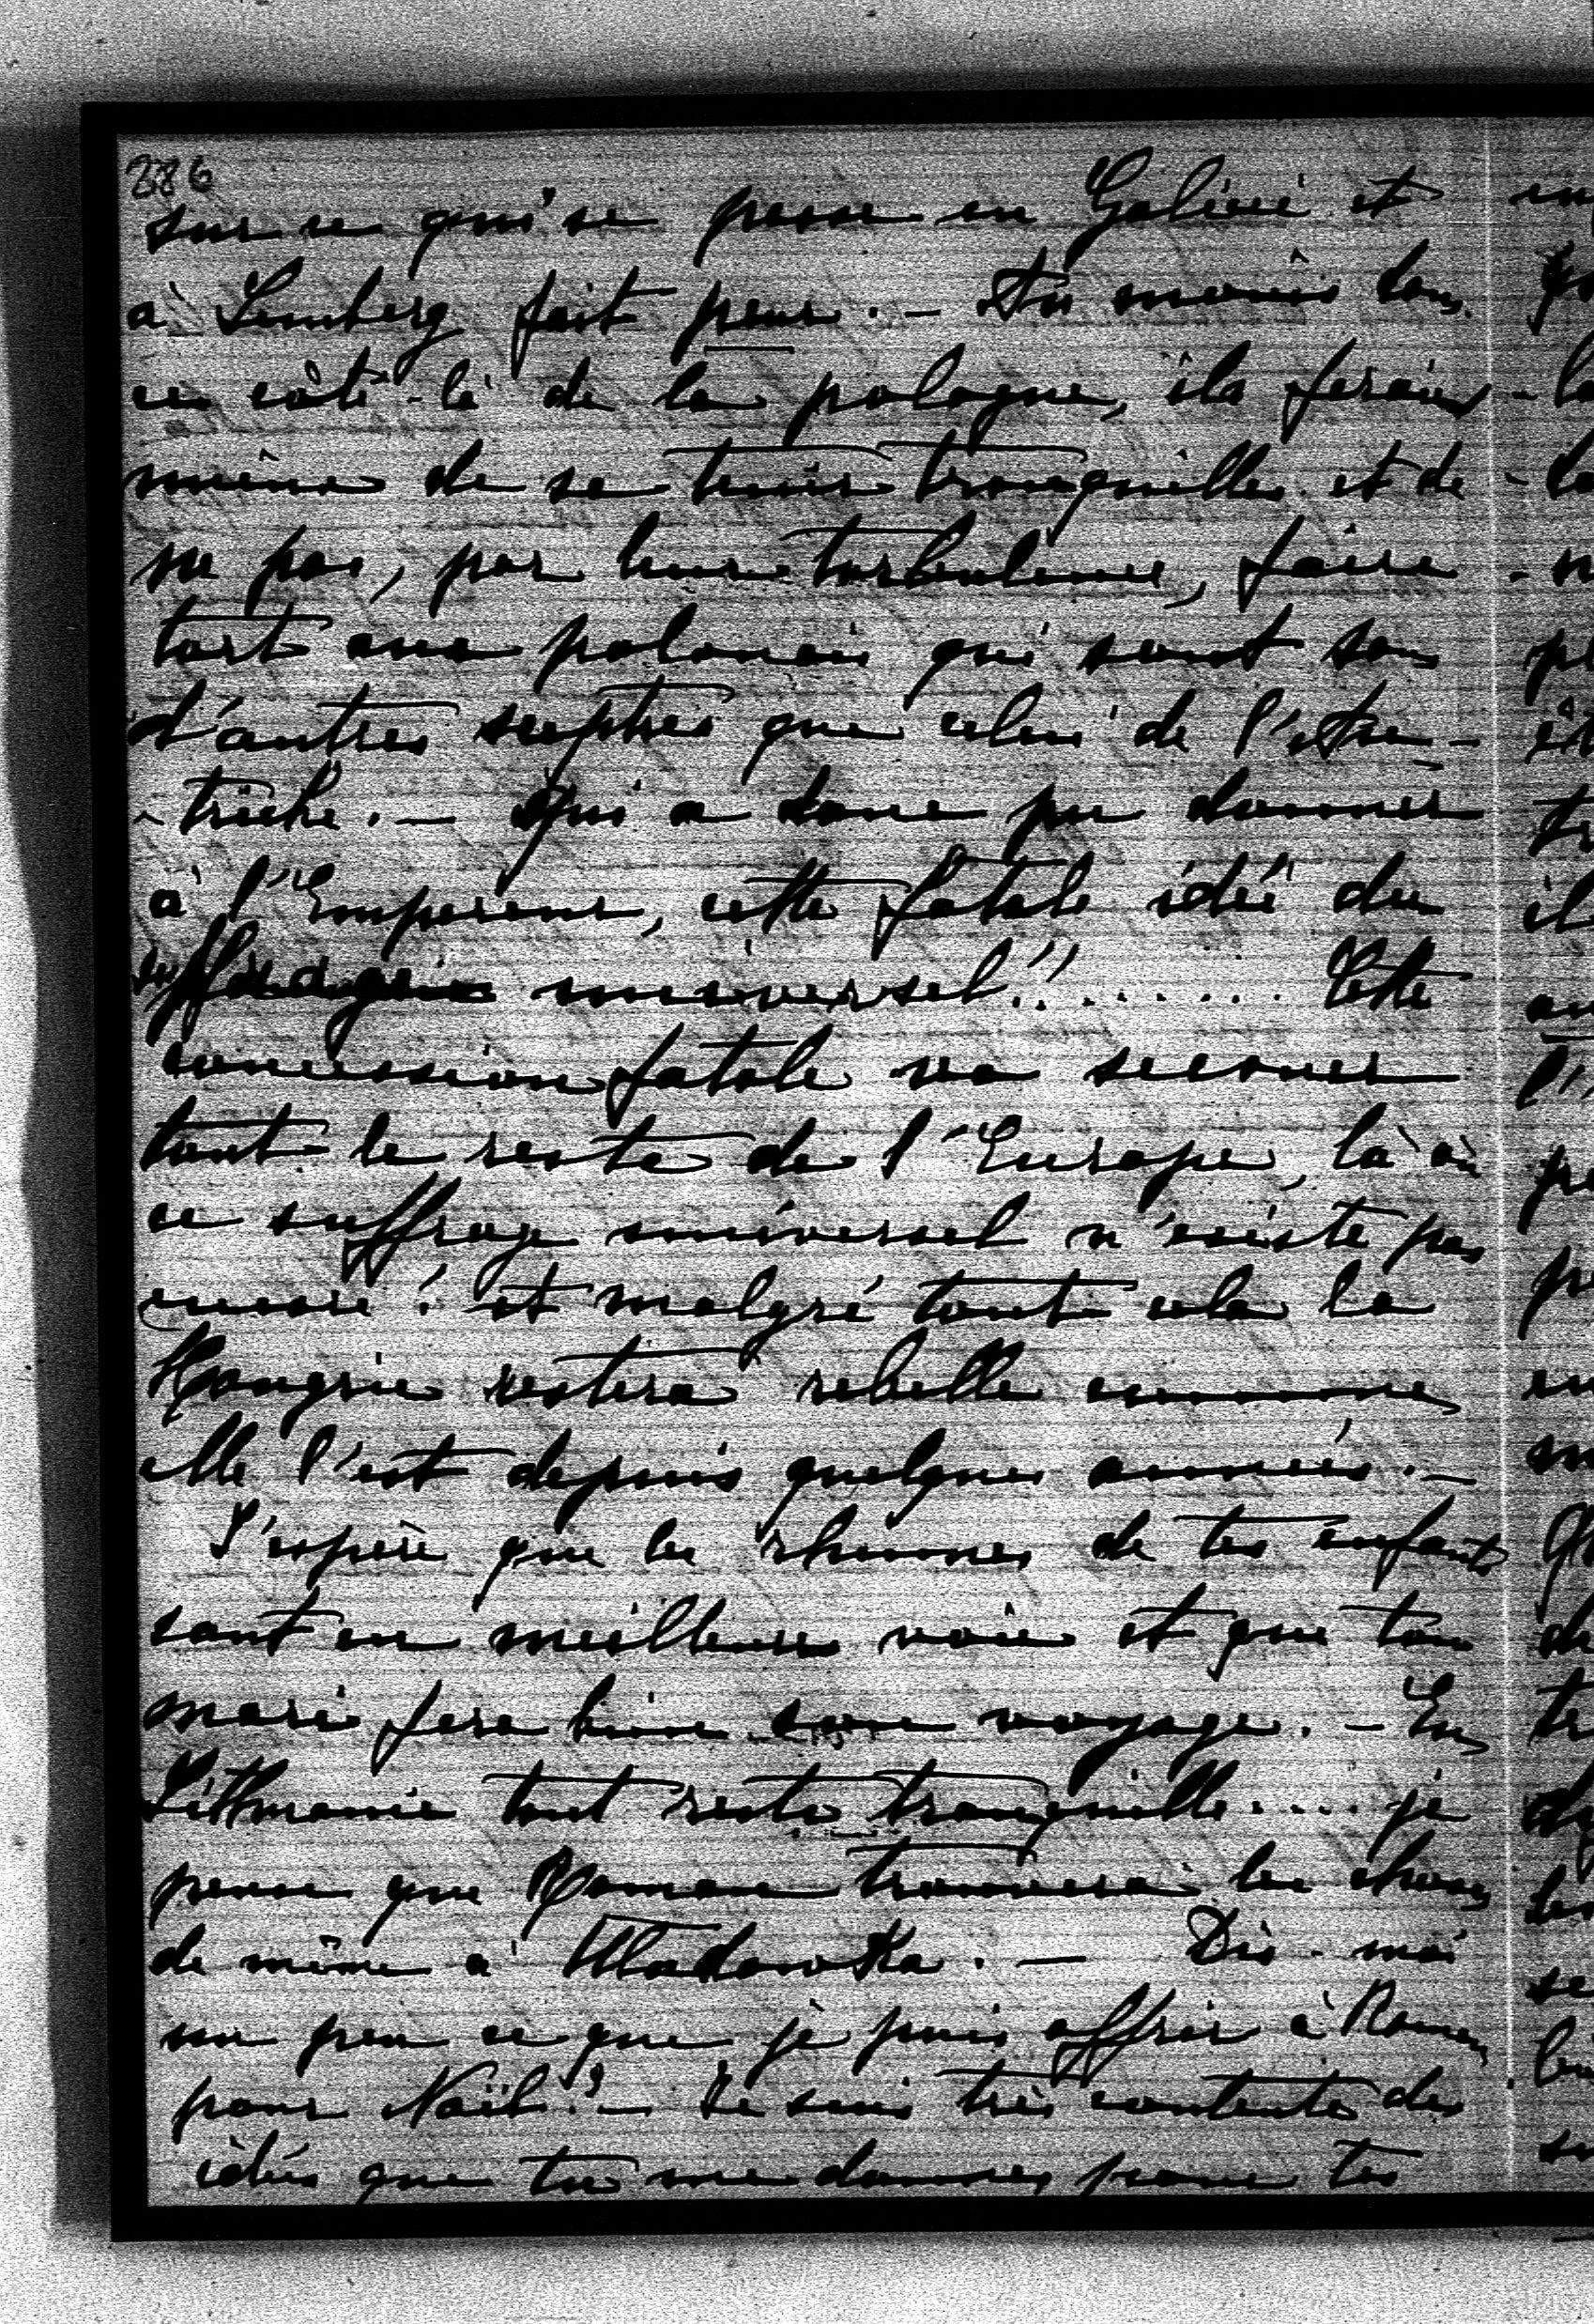 386
sur ce qui se passe en Galicie et
à Lemberg fait peur. — Au moins dans
ce côté-là de la pologne, ils feraient
mieux de se tenir tranquilles et de
ne pas, par leur turbulence, faire
tort aux polonais qui sont sous
d'autres sceptres que celui de l'Au-
-triche. — Qui a donc pu donner
à l'Empereur, cette fatale idée du
suffrage universel!! ....... Cette
concession fatale va secouer
tout le reste de l'Europe, là où
ce suffrage universel n'existe pas
encore! et malgré tout cela la
Hongrie restera rebelle comme
elle l'est depuis quelques années. —
J'espère que les rhumes de tes enfants
sont en meilleure voie et que ton
mari fera bien son voyage. — En
Lithuanie tout reste tranquille.... je
pense que Roman trouvera les choses
de même à Wladowka. — Dis-moi
un peu ce que je puis offrir à Roman
pour Noël? — Je suis très contente des
idées que tu me donnes pour tes